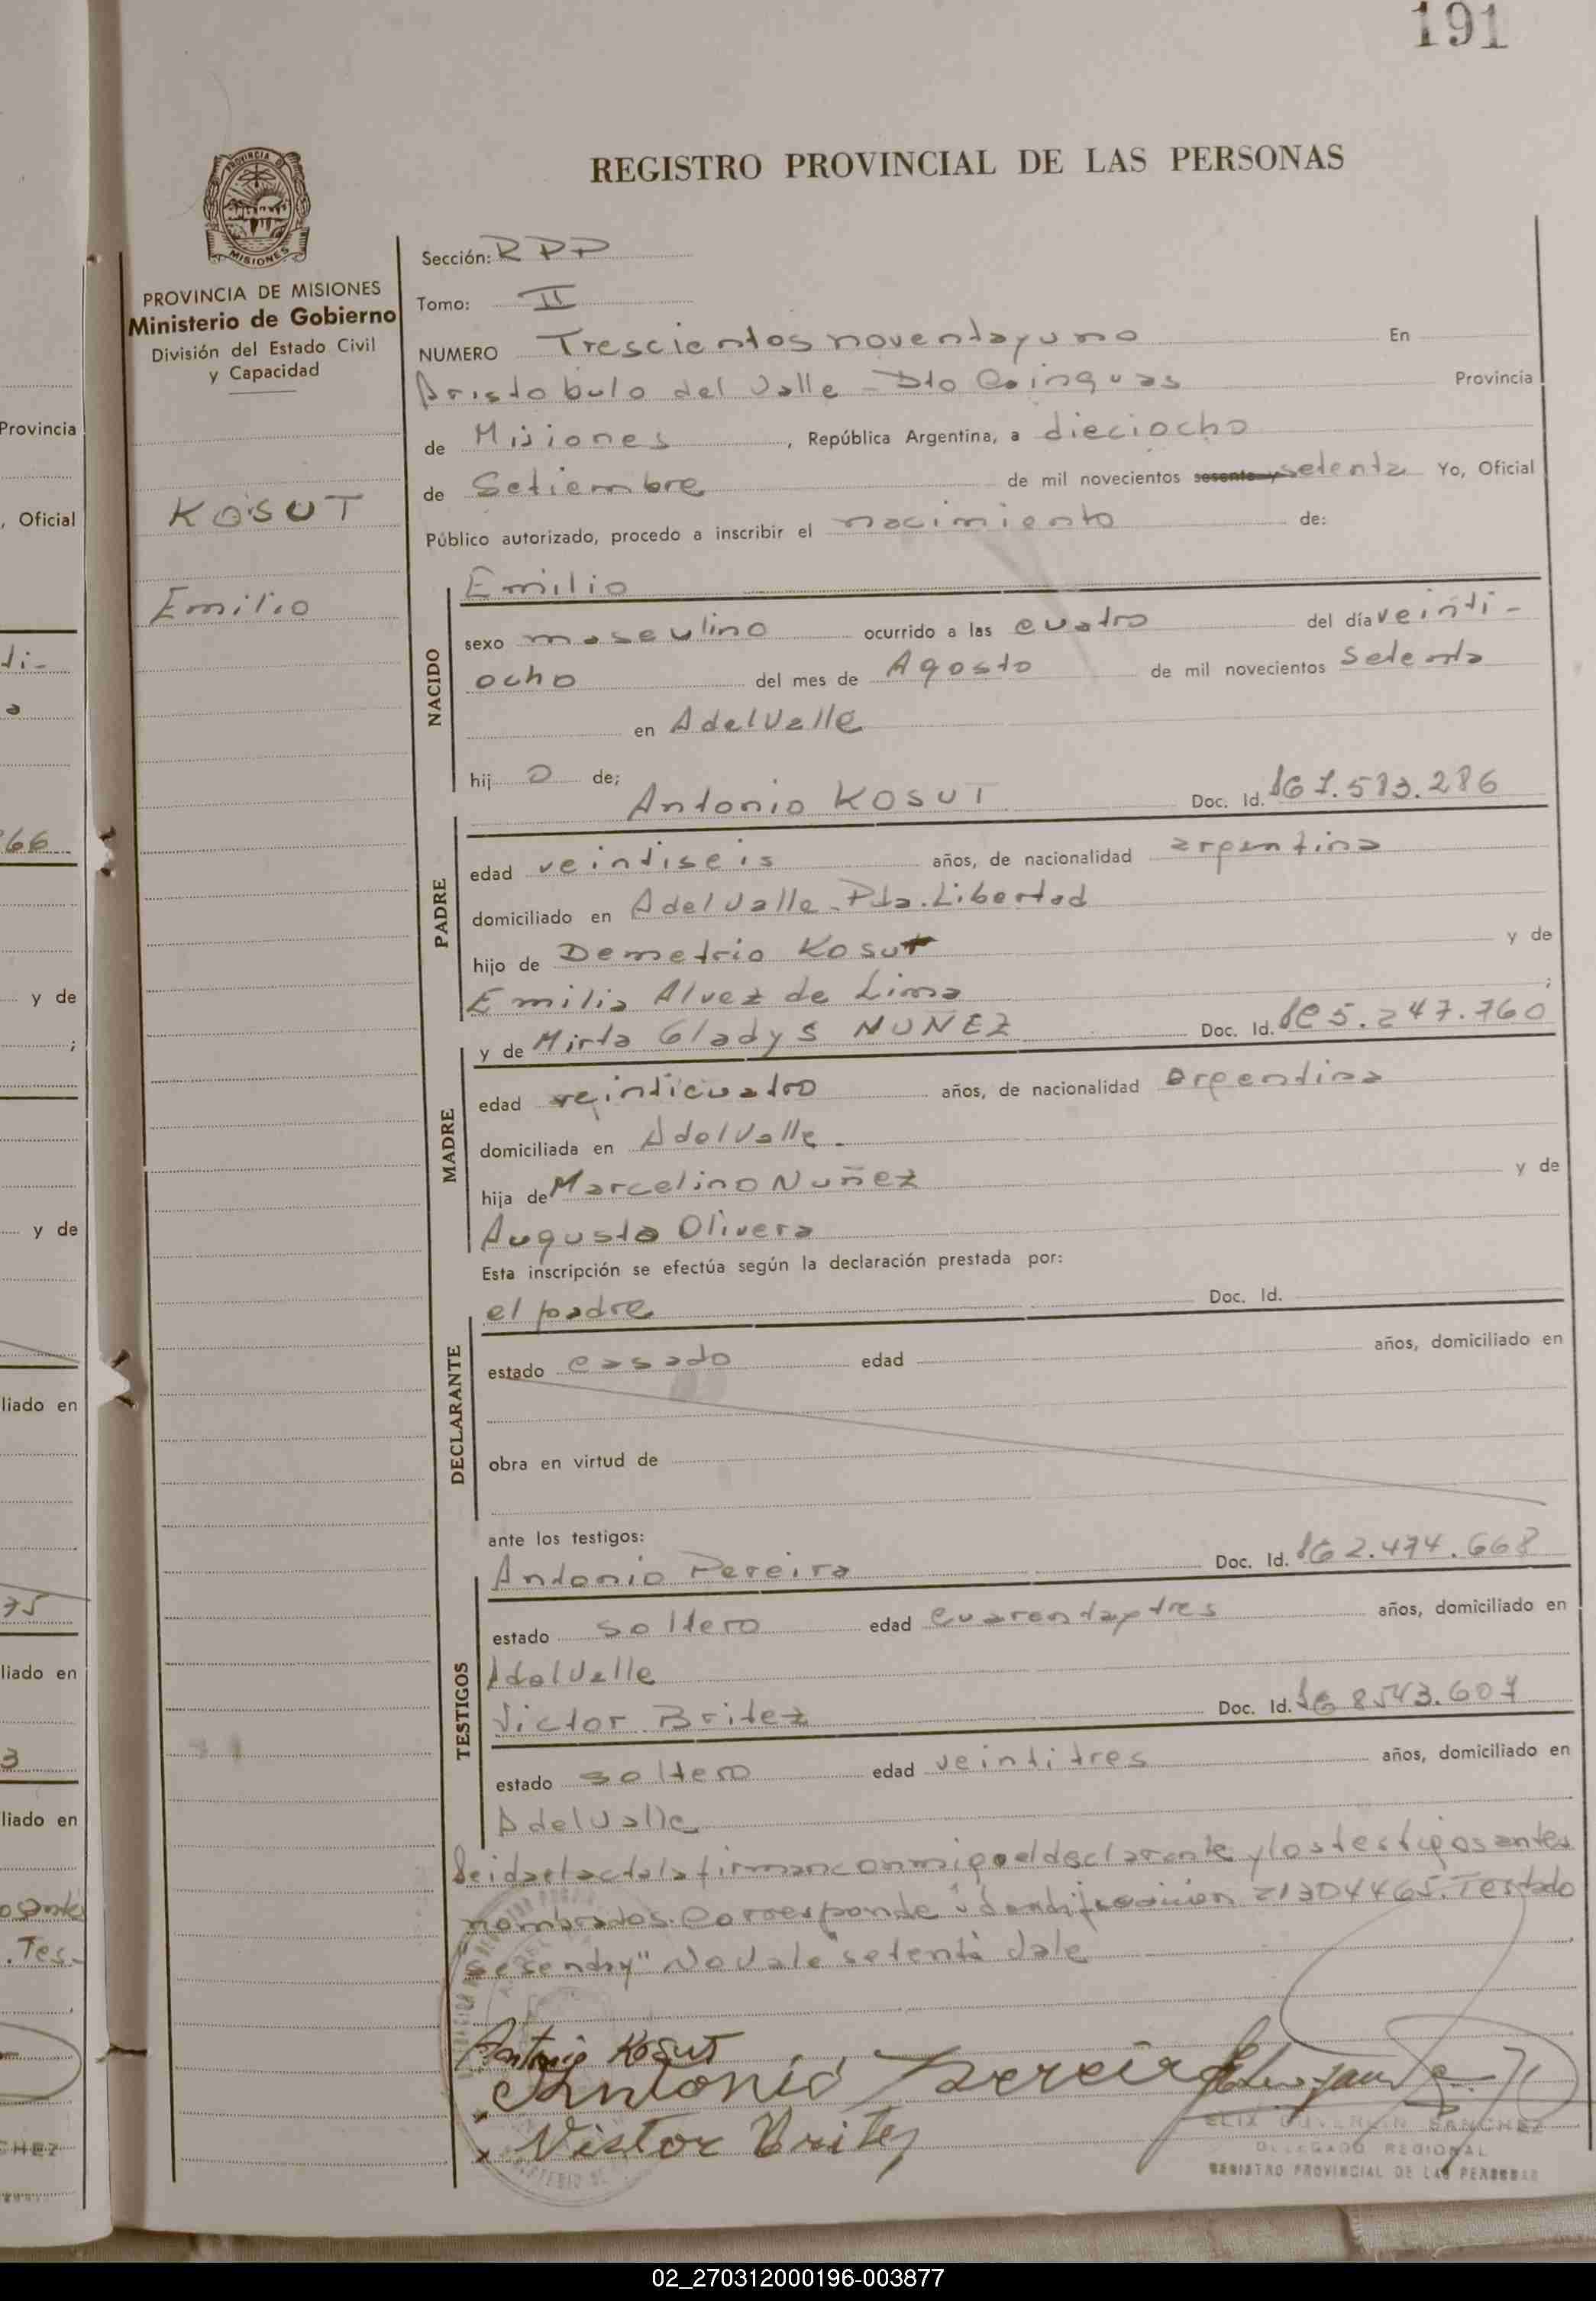 191
REGISTRO PROVINCIAL DE LAS PERSONAS
PROVINCIA DE MISIONES
MISIONES
PROVINCIA DE MISIONES
Ministerio de Gobierno
División del Estado Civil
y Capacidad
KOSUT
Emilio
Sección: RPP
Tomo: II
NUMERO Trescientos noventayuno En
Aristobulo del Valle - Dto Cainguas Provincia
de Misiones, República Argentina, a dieciocho
de Setiembre de mil novecientos sesenta y setenta Yo, Oficial
Público autorizado, procedo a inscribir el nacimiento de:
NACIDO
Emilio
sexo masculino ocurrido a las cuatro del día veinti-
ocho del mes de Agosto de mil novecientos Setenta
en AdelValle
hij o de;
PADRE
Antonio KOSUT Doc. Id.
edad veintiseis años, de nacionalidad argentina
domiciliado en AdelValle. Pda. Libertad
hijo de Demetrio Kosut y de
Emilia Alvez de Lima ;
MADRE
y de Mirta Gladys NUÑEZ Doc. Id. 5.247.760
edad veinticuatro años, de nacionalidad argentina
domiciliada en AdelValle.
hija de Marcelino Nuñez y de
Augusta Olivera
Esta inscripción se efectúa según la declaración prestada por:
DECLARANTE
el padre Doc. Id.
estado casado edad años, domiciliado en
obra en virtud de
ante los testigos:
TESTIGOS
Antonio Pereira Doc. Id. 2.474.668
estado soltero edad cuarentaytres años, domiciliado en
AdelValle
Victor Britez Doc. Id. 8543.607
estado soltero edad veintitres años, domiciliado en
AdelValle
Leida el acta la firman conmigo el declarante y los testigos antes
nombrados. Corresponde identificacion 21304465. Testado
"sesentay" No Vale "setenta" Vale
Antonio Kosut
Antonio Pereira
Victor Britez
SANCHEZ
DELEGADO REGIONAL
REGISTRO PROVINCIAL DE LAS PERSONAS
Provincia
, Oficial
ti-
66
y de
;
y de
liado en
75
liado en
3
liado en
. Tes-
CHEZ
02_270312000196-003877